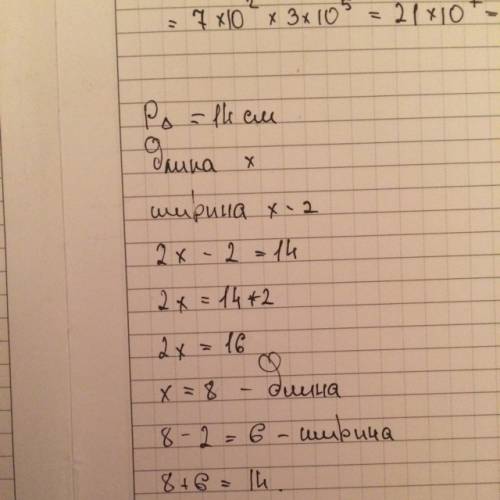 = 7×10² × 3×10⁵ = 21×10⁷ =
P△ = 14 см
Длина x
ширина x - 2
2x - 2 = 14
2x = 14+2
2x = 16
x = 8 - длина
8 - 2 = 6 - ширина
8 + 6 = 14.